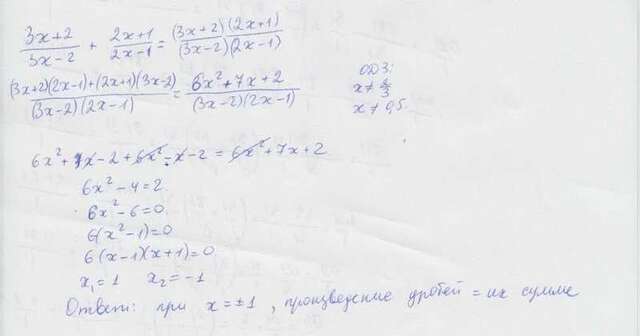 (3x+2)/(3x-2) + (2x+1)/(2x-1) = (3x+2)(2x+1)/(3x-2)(2x-1)
((3x+2)(2x-1)+(2x+1)(3x-2))/(3x-2)(2x-1) = (6x²+7x+2)/(3x-2)(2x-1)
ОДЗ:
x≠2/3
x≠0,5
6x²+x-2+6x²-x-2=6x²+7x+2
6x²-4=2
6x²-6=0
6(x²-1)=0
6(x-1)(x+1)=0
x₁=1 x₂=-1
Ответ: при x=±1, произведение дробей = их сумме